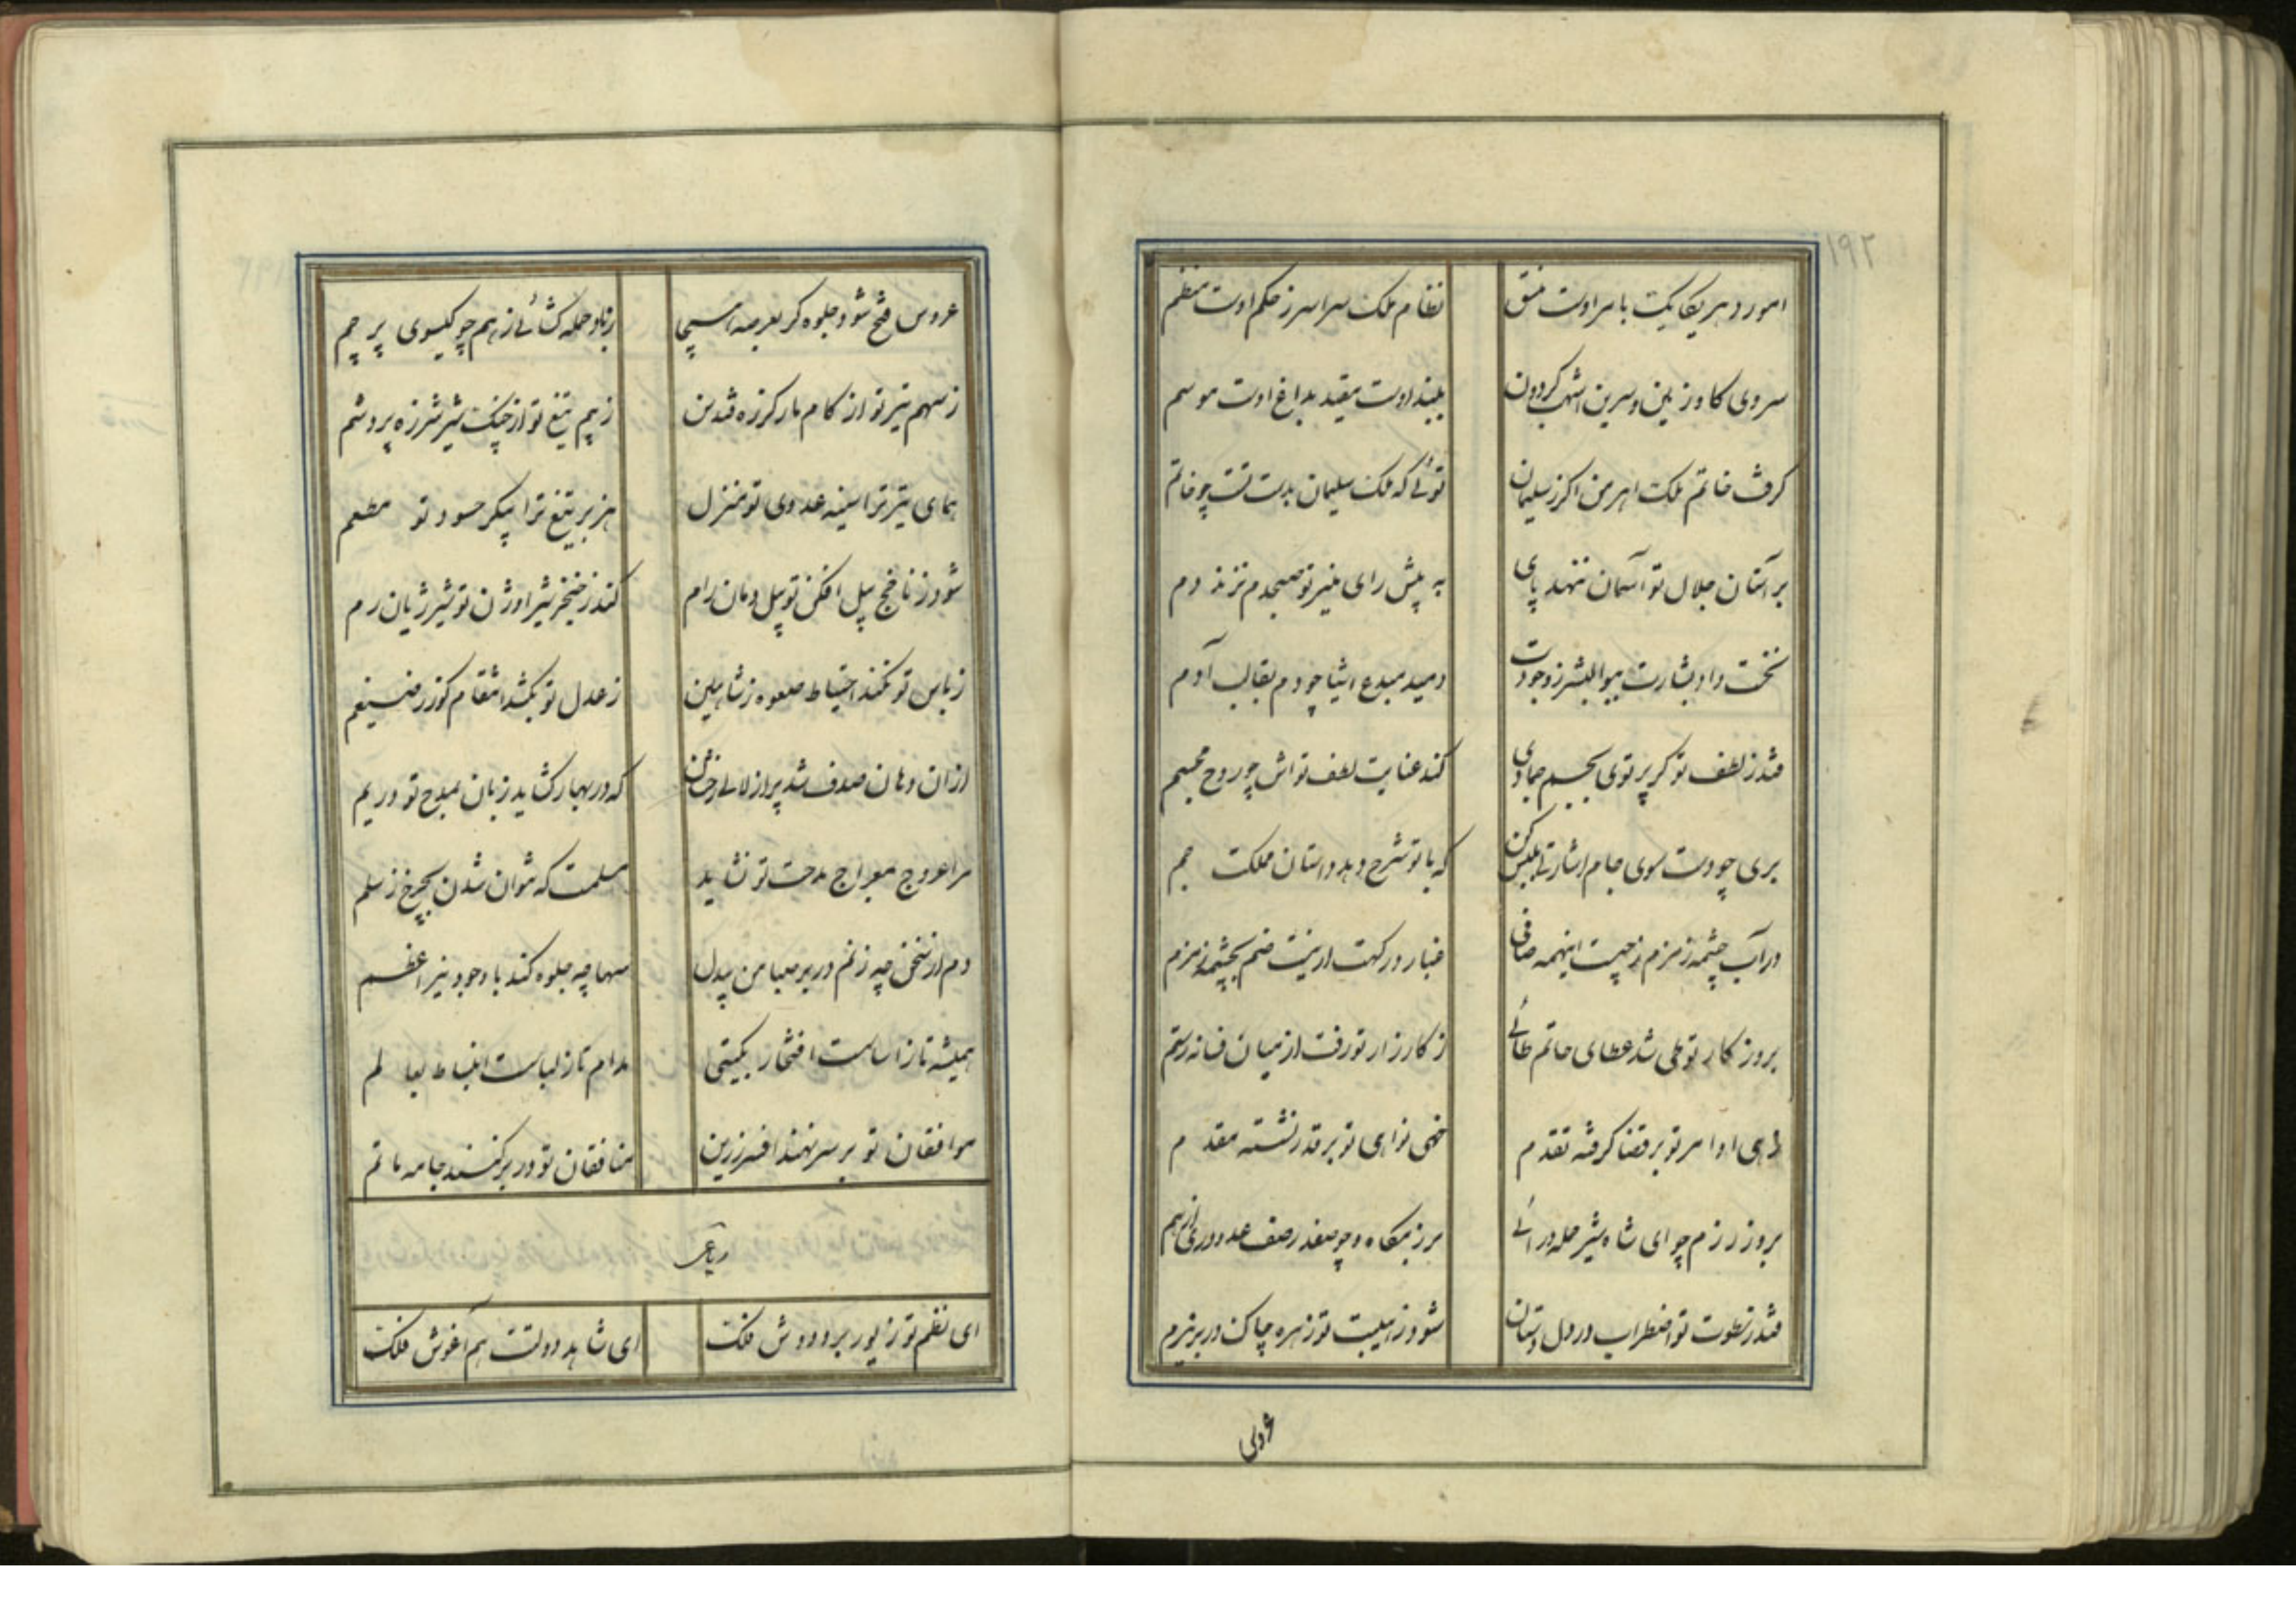 ۱۹۲
امور دهر یکایک بامر اوست منسق نظام ملک سراسر ز حکم اوست منظم
سروی کاو زمین و سرین اشهب کردون ببند اوست مقید بداغ اوست موسم
کرفت خاتم ملک اهرمن اکر ز سلیمان توئی که ملک سلیمان بدست تست چو خاتم
بر آستان جلال تو آسمان ننهد پای به پیش رای منیر تو صبحدم نزند دم
نخست داد بشارت ببوالبشر ز وجودت دمید مبدع اشیا چو دم بقالب آدم
فتد ز لطف تو کر پرتوی بجسم جمادی کند عنایت لطف تواش چو روح مجسم
بری چو دست سوی جام اشارتی بلبش کن که با تو شرح دهد داستان مملکت جم
در آب چشمه زمزم ز چیست اینهمه صافی غبار درکهت ار نیست ضم بچشمه زمزم
بروزکار تو طی شد عطای حاتم طائی ز کارزار تو رفت از میان فسانه رستم
زهی اوامر تو بر قضا کرفته تقدم خهی نواهی تو بر قدر نشسته مقدم
بروز رزم چو ای شاه شیر حمله درائی برزمکاه و چو صفدر صف عدو دری از هم
فتد ز سطوت تو اضطراب در دل دستان شود ز هیبت تو زهره چاک در بر نیرم
عروس
عروس فتح شود جلوه کر بعرصه هیجا ز باد حمله کشائی ز هم چو کیسوی پرچم
ز سهم تیر تو از کام مار کرزه فتد سن ز بیم تیغ تو از چنک شیر شرزه پرد شم
همای تیر ترا سینه عدوی تو منزل هزبر تیغ ترا پیکر حسود تو مطعم
شود ز ناخج پیل افکن تو پیل دمان رام کند ز خنجر شیر اوژن تو شیر ژیان رم
ز باس تو نکند احتیاط صعوه ز شاهین ز عدل تو بکشد انتقام کوزن ز ضیغم
ازان دهان صدف شد پر از لالی رخشان که در بهار کشاید زبان بمدح تو در یم
مرا عروج بمعراج مدحت تو نشاید مسلمست که نتوان شدن بچرخ ز سلم
دم از سخن چه زنم در بر صبا من بیدل سها چه جلوه کند با وجود نیر اعظم
همیشه تا ز اساست افتخار بکیتی مدام تا ز لباست انبساط بعالم
موافقان تو بر سر نهند افسر زرین منافقان تو در بر کنند جامه ماتم
رباعی
ای نظم تو زیور بر و دوش فلک ای شاهد دولتت هم آغوش فلک